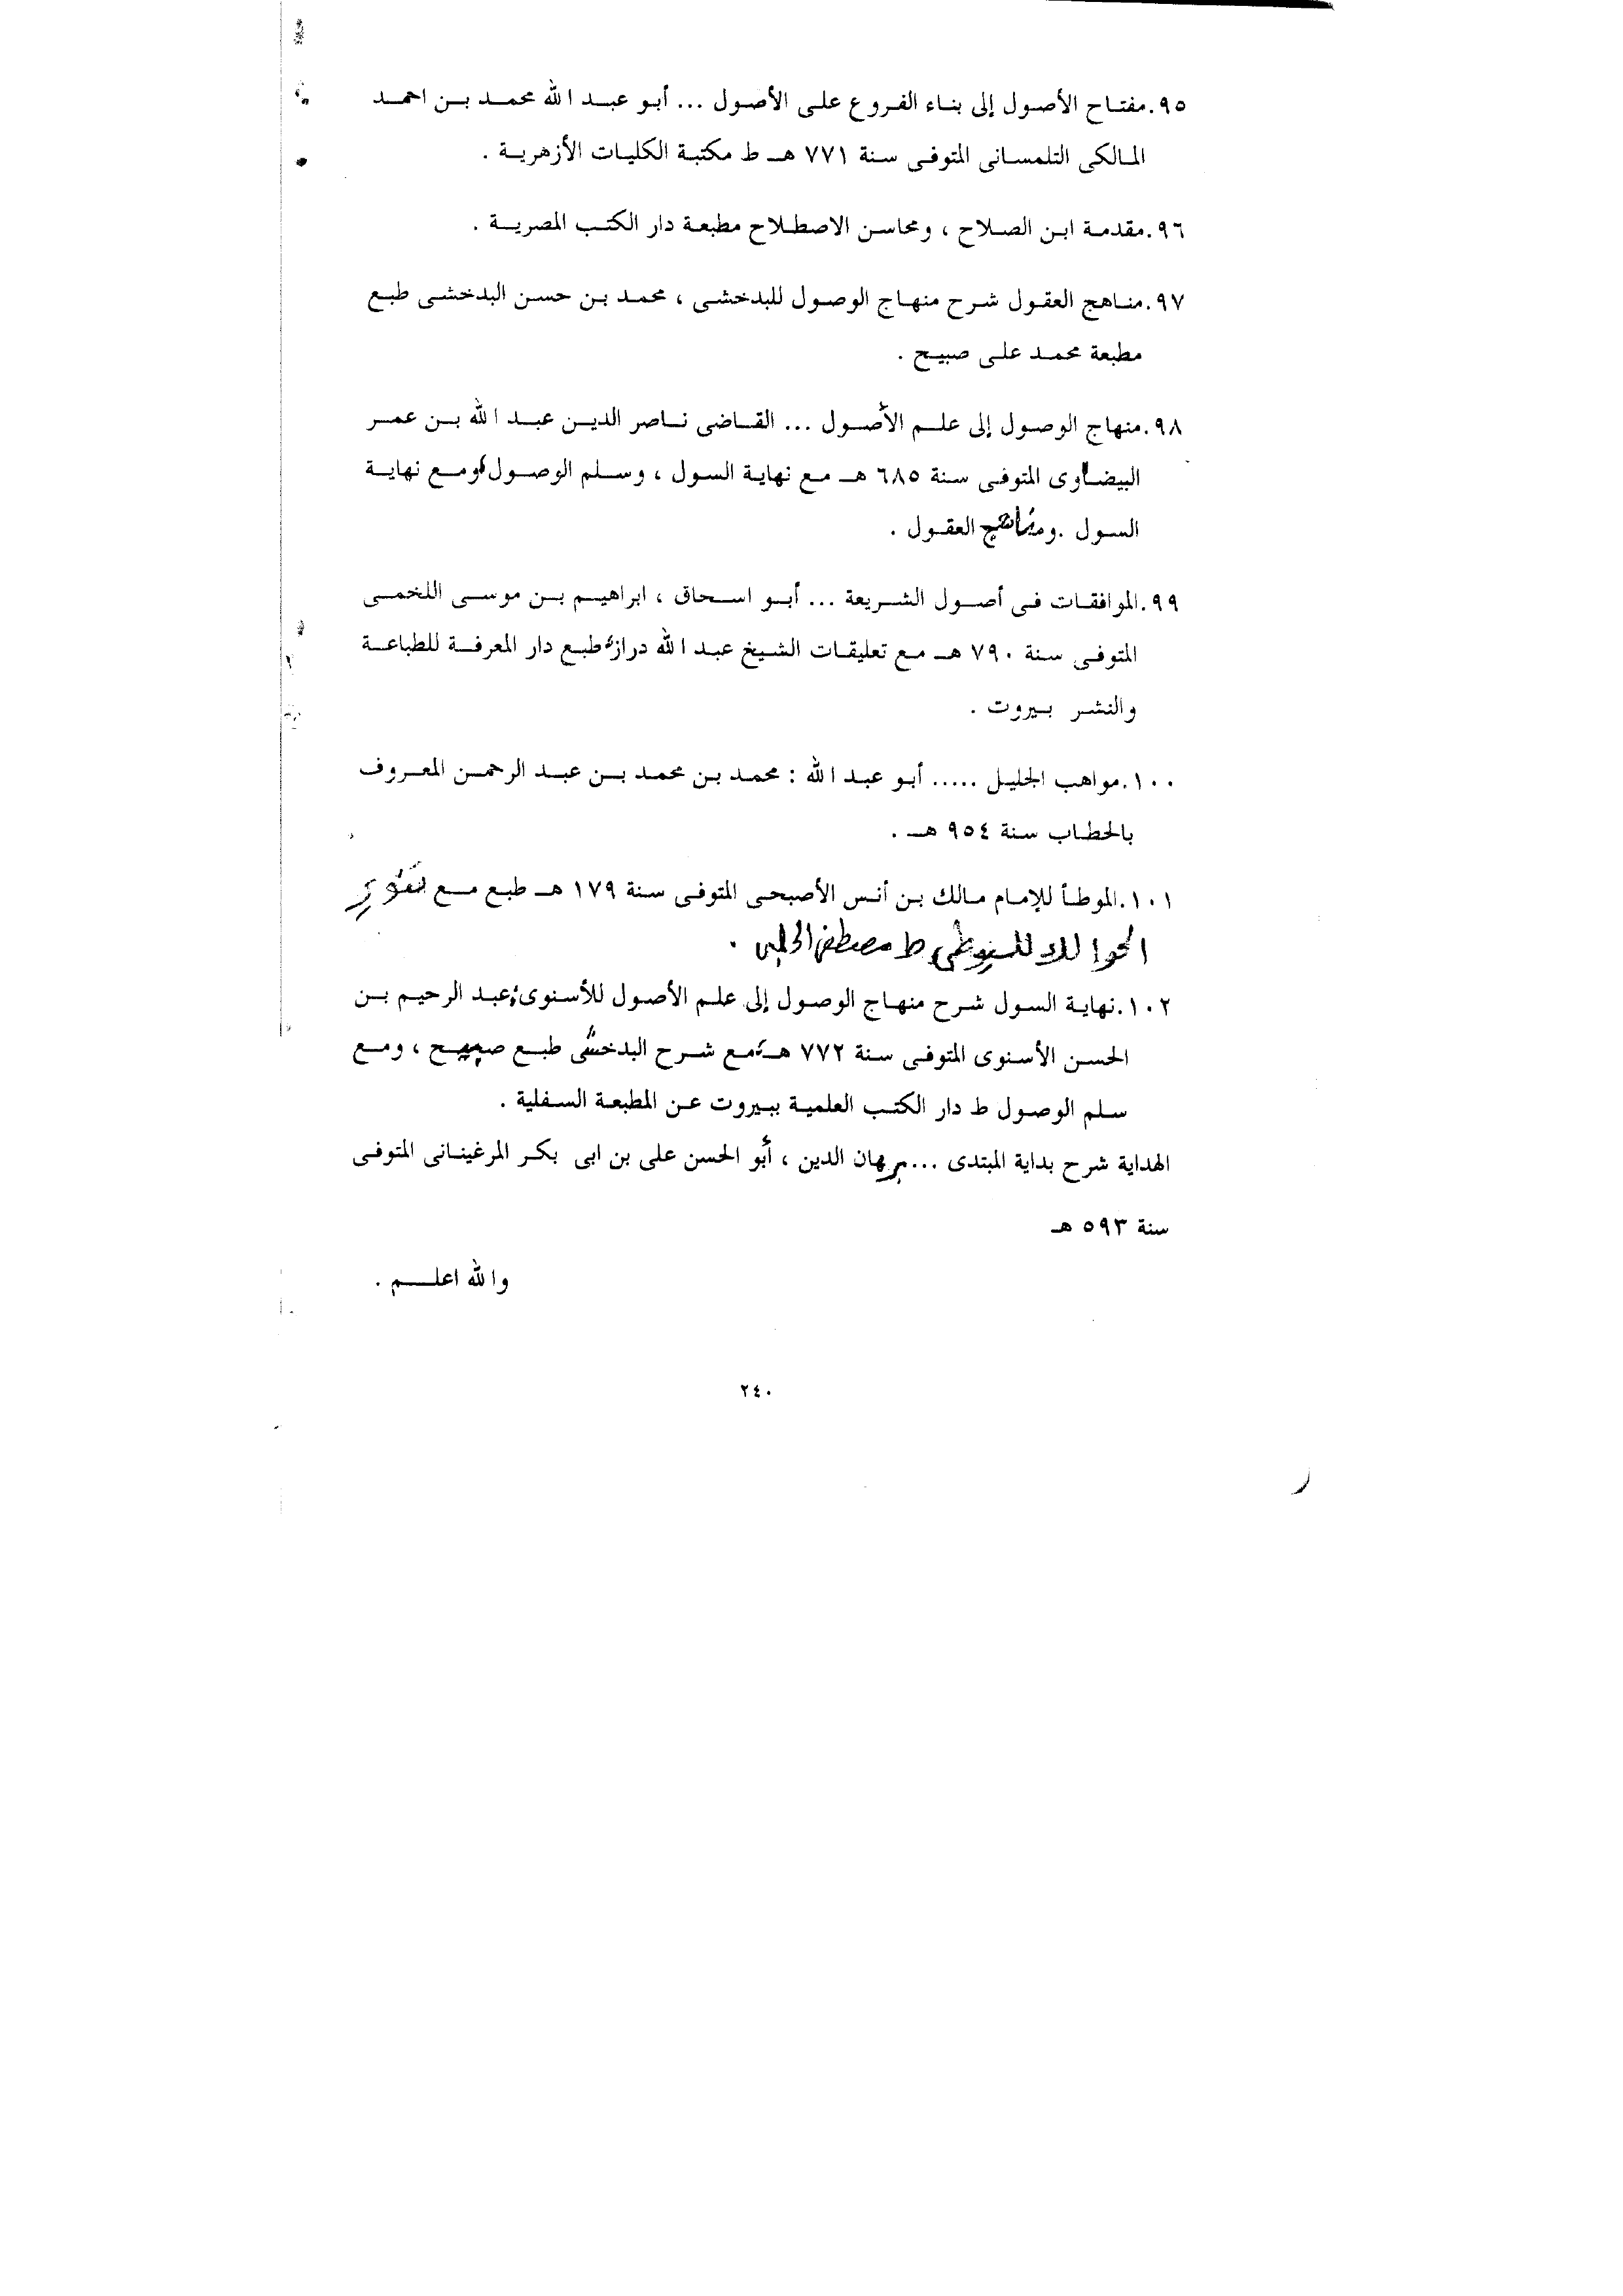 ٩٥.مفتاح الأصول إلى بناء الفروع على الأصول ... أبو عبد الله محمد بن احمد
المالكى التلمسانى المتوفى سنة ٧٧١ هـ ط مكتبة الكليات الأزهرية .
٩٦.مقدمة ابن الصلاح ، ومحاسن الاصطلاح مطبعة دار الكتب المصرية .
٩٧.مناهج العقول شرح منهاج الوصول للبدخشى ، محمد بن حسن البدخشى طبع
مطبعة محمد على صبيح .
٩٨.منهاج الوصول إلى علم الأصول ... القاضى ناصر الدين عبد الله بن عمر
البيضاوى المتوفى سنة ٦٨٥ هـ مع نهاية السول ، وسلم الوصول ، ومع نهاية
السول .ومناهج العقول .
٩٩.الموافقات فى أصول الشريعة ... أبو اسحاق ، ابراهيم بن موسى اللخمى
المتوفى سنة ٧٩٠ هـ مع تعليقات الشيخ عبد الله دراز، طبع دار المعرفة للطباعة
والنشر بيروت .
١٠٠.مواهب الجليل ..... أبو عبد الله : محمد بن محمد بن عبد الرحمن المعروف
بالحطاب سنة ٩٥٤ هـ .
١٠١.الموطأ للإمام مالك بن أنس الأصبحى المتوفى سنة ١٧٩ هـ طبع مع تنوير
الحوالك للسيوطى ط مصطفى الحلبى .
١٠٢.نهاية السول شرح منهاج الوصول إلى علم الأصول للأسنوى، عبد الرحيم بن
الحسن الأسنوى المتوفى سنة ٧٧٢ هـ، مع شرح البدخشى طبع صبيح ، ومع
سلم الوصول ط دار الكتب العلمية ببيروت عن المطبعة السفلية .
الهداية شرح بداية المبتدى ... برهان الدين ، أبو الحسن على بن ابى بكر المرغينانى المتوفى
سنة ٥٩٣ هـ
والله اعلم .
٢٤٠